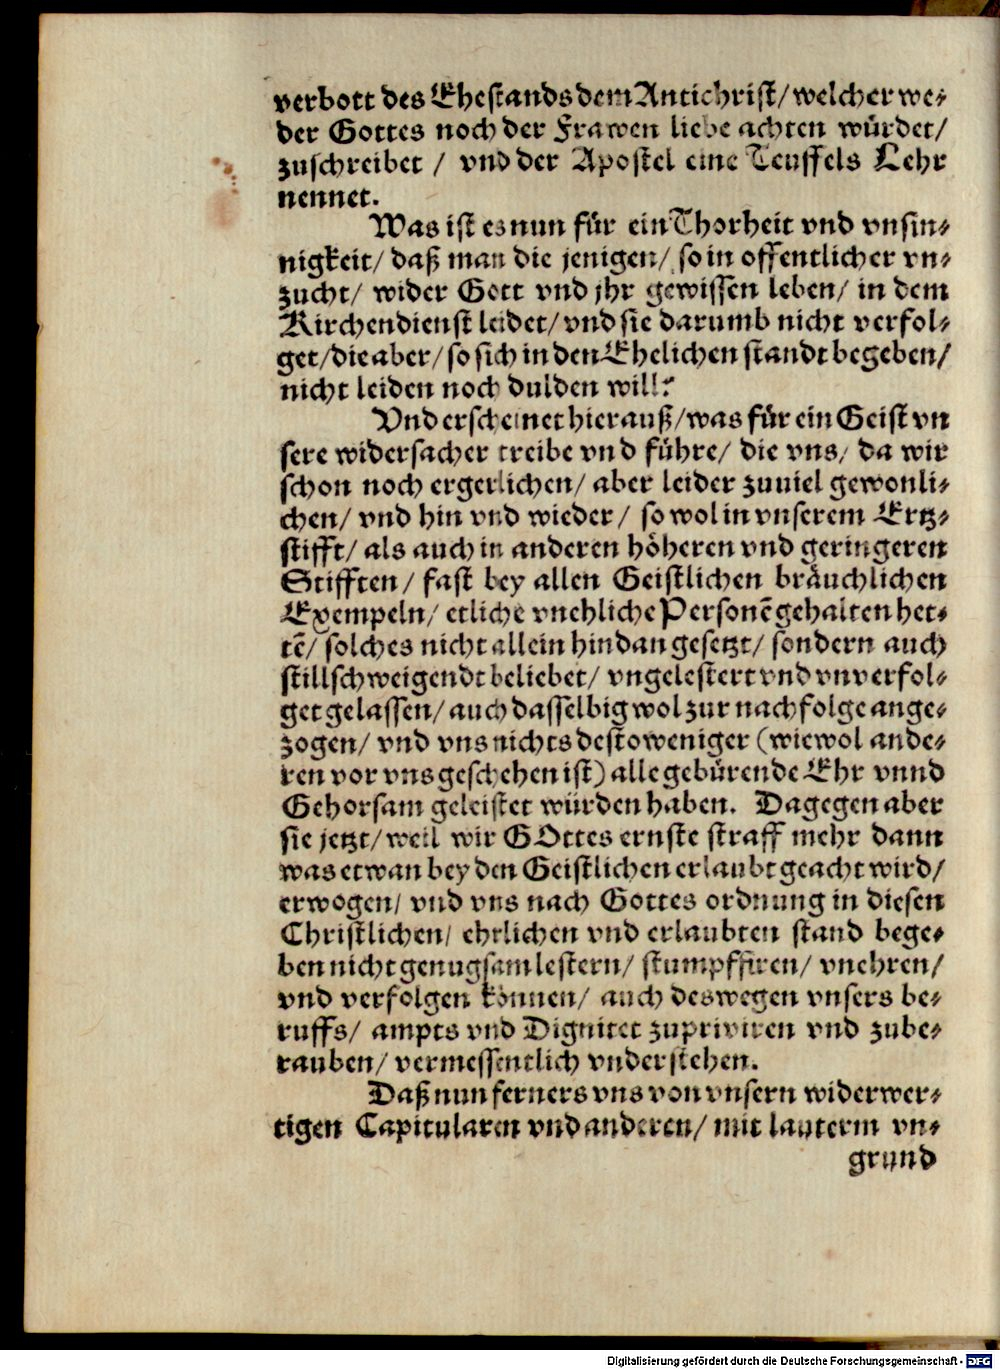 verbott des Ehestands dem Antichrist/ welcher we-
der Gottes noch der Frawen liebe achten würdet/
zuschreibet / vnd der Apostel eine Teuffels Lehr
nennet.
Was ist es nun für ein Thorheit vnd vnsin-
nigkeit/ daß man die jenigen/ so in offentlicher vn-
zucht/ wider Gott vnd jhr gewissen leben/ in dem
Kirchendienst leidet/ vnd sie darumb nicht verfol-
get/ die aber/ so sich in den Ehelichen standt begeben/
nicht leiden noch dulden will?
Vnd erscheinet hierauß/ was für ein Geist vn
sere widersacher treibe vnd führe/ die vns/ da wir
schon noch ergerlichen/ aber leider zuuiel gewonli-
chen/ vnd hin vnd wieder/ so wol in vnserem Ertz-
stifft/ als auch in anderen höheren vnd geringeren
Stifften/ fast bey allen Geistlichen bräuchlichen
Exempeln/ etliche vnehliche Personē gehalten het-
tē/ solches nicht allein hindan gesetzt/ sondern auch
stillschweigendt beliebet/ vngelestert vnd vnuerfol-
get gelassen/ auch dasselbig wol zur nachfolge ange-
zogen/ vnd vns nichts destoweniger (wiewol ande-
ren vor vns geschehen ist) alle gebürende Ehr vnnd
Gehorsam geleistet würden haben. Dagegen aber
sie jetzt/ weil wir GOttes ernste straff mehr dann
was etwan bey den Geistlichen erlaubt geacht wird/
erwogen/ vnd vns nach Gottes ordnung in diesen
Christlichen/ ehrlichen vnd erlaubten stand bege-
ben nicht genugsam lestern/ stumpffiren/ vnehren/
vnd verfolgen können/ auch deswegen vnsers be-
ruffs/ ampts vnd Dignitet zupriviren vnd zube-
rauben/ vermessentlich vnderstehen.
Daß nun ferners vns von vnsern widerwer-
tigen Capitularen vnd anderen/ mit lauterm vn-
grund
Digitalisierung gefördert durch die Deutsche Forschungsgemeinschaft - DFG